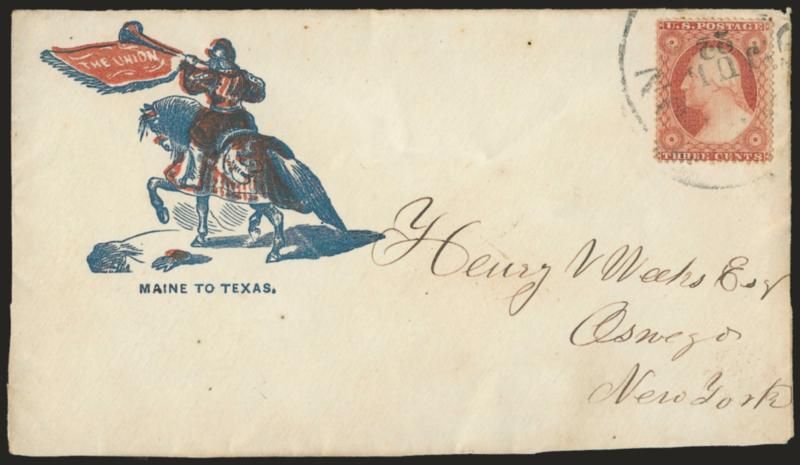 THE UNION
MAINE TO TEXAS.
U.S. POSTAGE
THREE CENTS
Henry V Weeks Esq
Oswego
New York